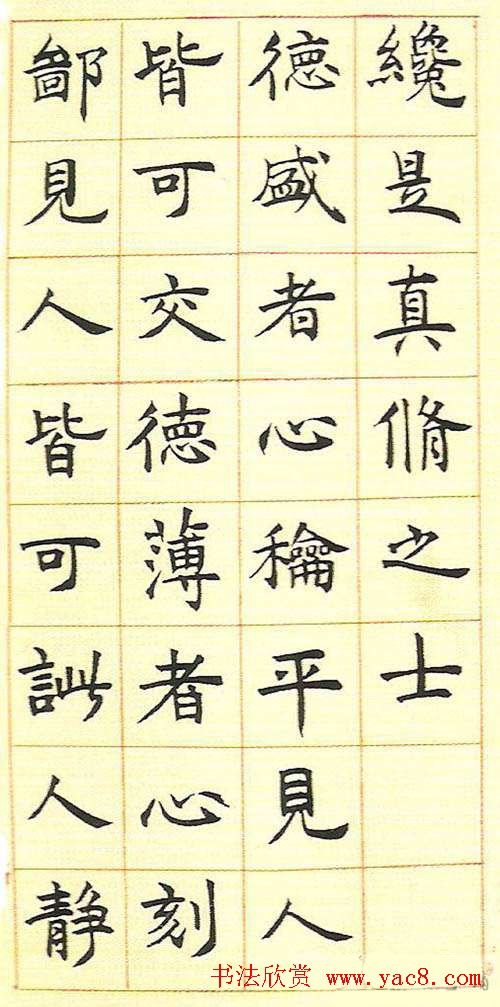 纔是真脩之士
德盛者心龢平見人
皆可交德薄者心刻
鄙見人皆可訿人静
书法欣赏 www.yac8.com